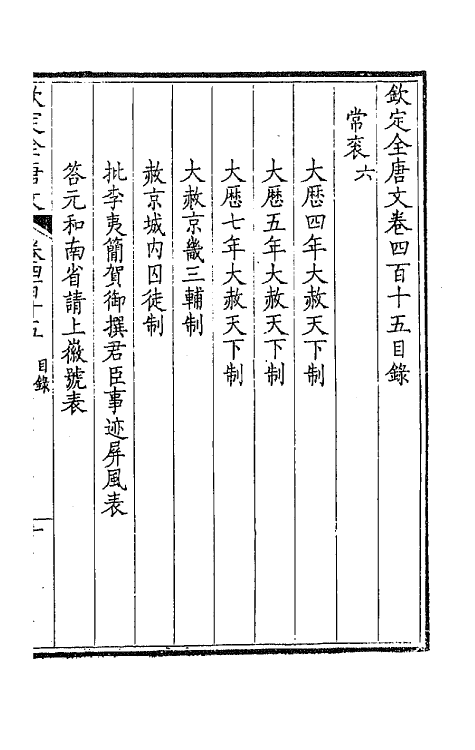 欽定全唐文卷四百十五目錄
常袞六
大歷四年大赦天下制
大歷五年大赦天下制
大歷七年大赦天下制
大赦京畿三輔制
赦京城內囚徒制
批李夷簡賀御撰君臣事迹屏風表
答元和南省請上徽號表
欽定全唐文 卷四百十五 目錄 一